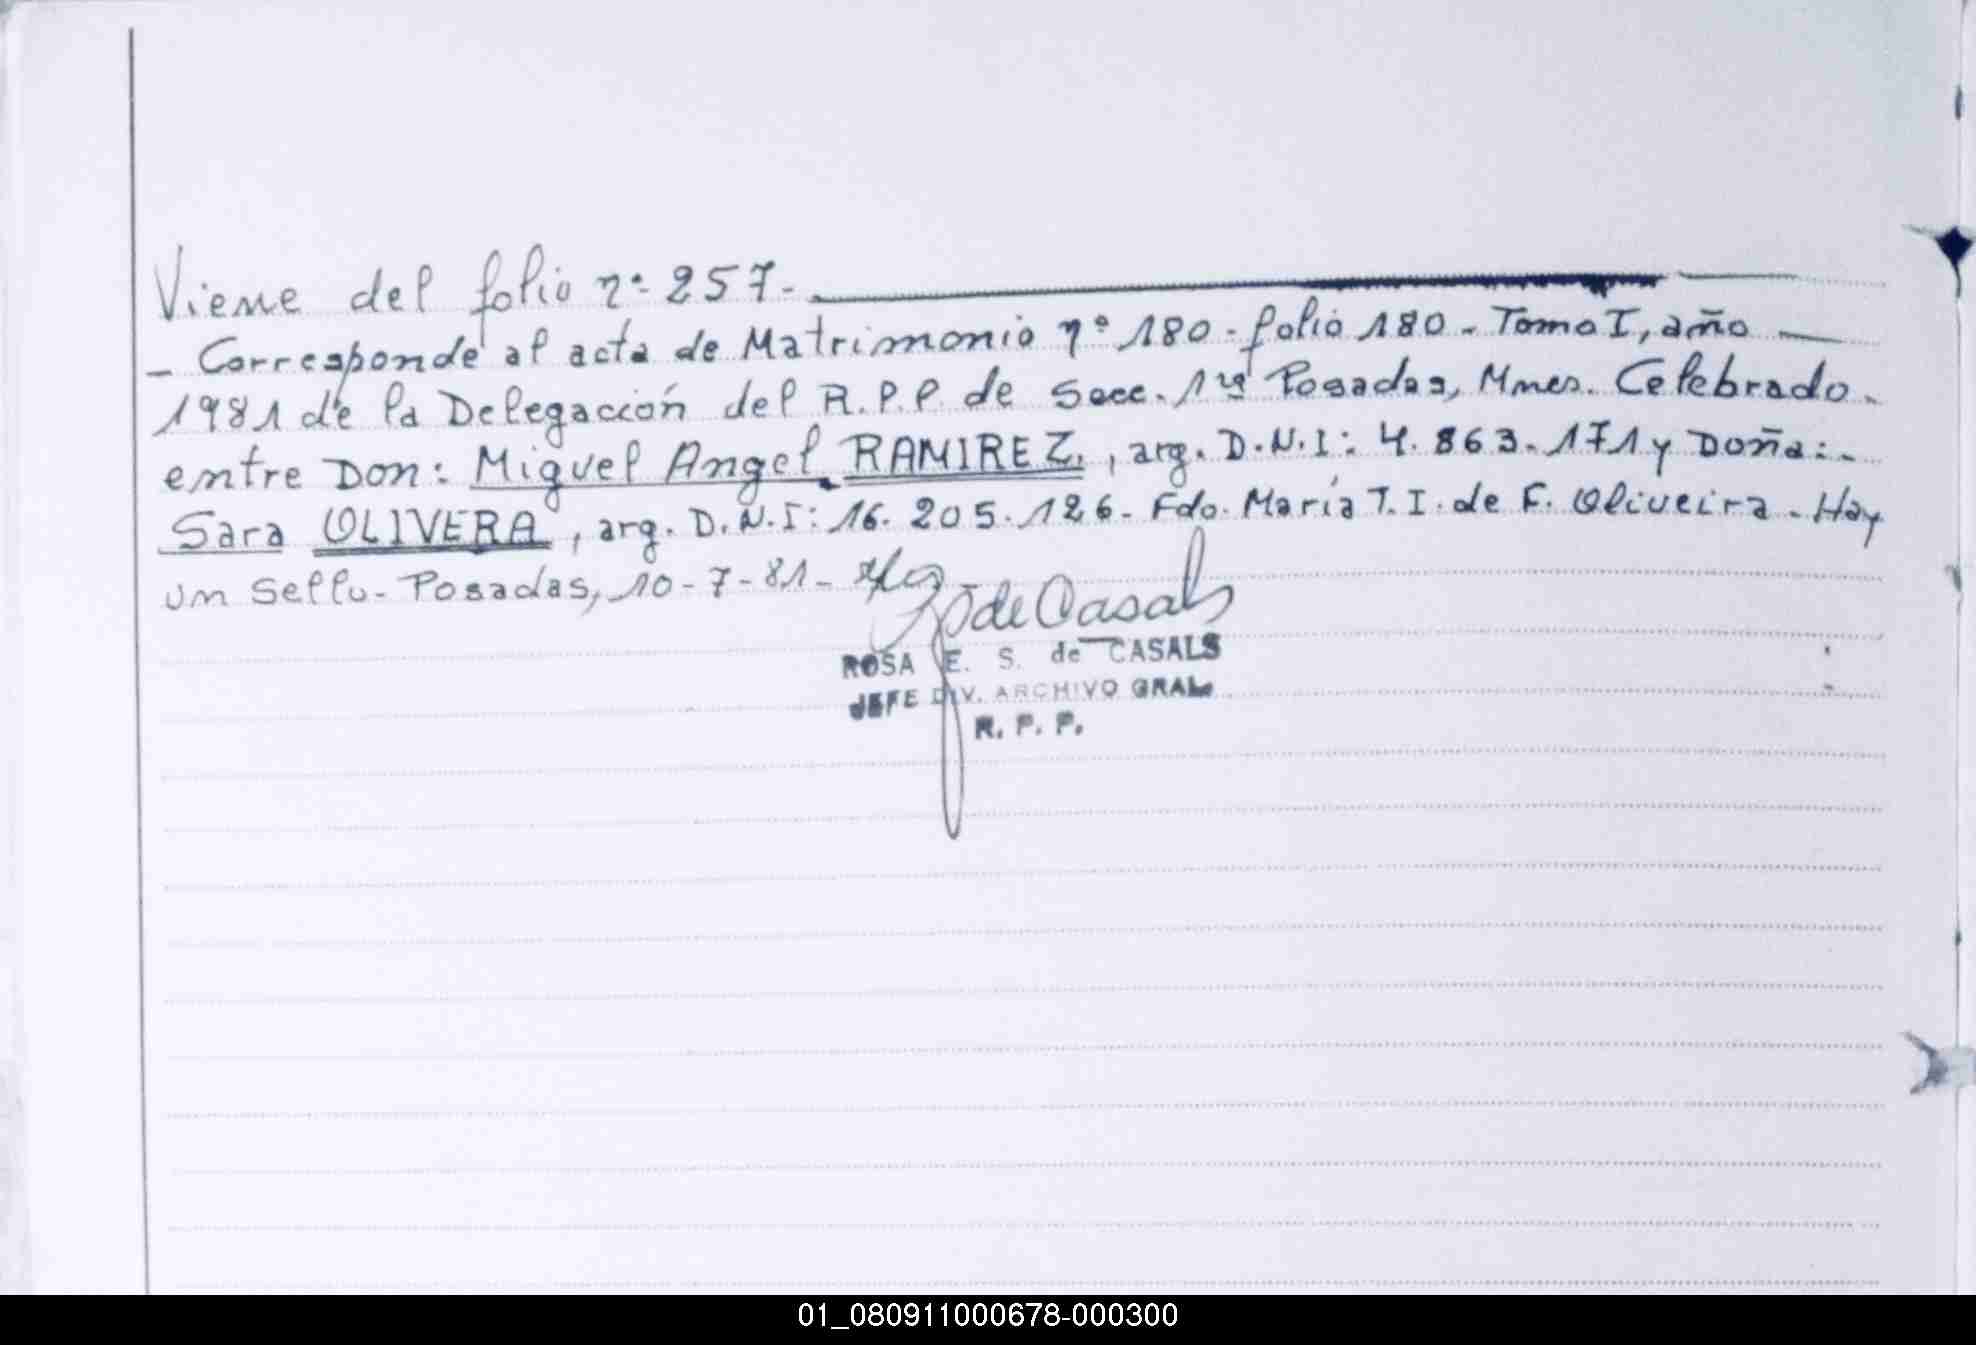 Viene del folio nº 257.-
- Corresponde al acta de Matrimonio nº 180 - folio 180 - Tomo I, año
1981 de la Delegación del R.P.P. de Secc. 1ra Posadas, Mnes. Celebrado.
entre Don: Miguel Angel RAMIREZ, arg. D.N.I: 4.863.171 y Doña:-
Sara OLIVERA, arg. D.N.I: 16.205.126- Fdo. María T. I. de F. Oliveira - Hay
un sello- Posadas, 10-7-81-
de Casals
ROSA E. S. de CASALS
JEFE DIV. ARCHIVO GRAL.
R. P. P.
01_080911000678-000300